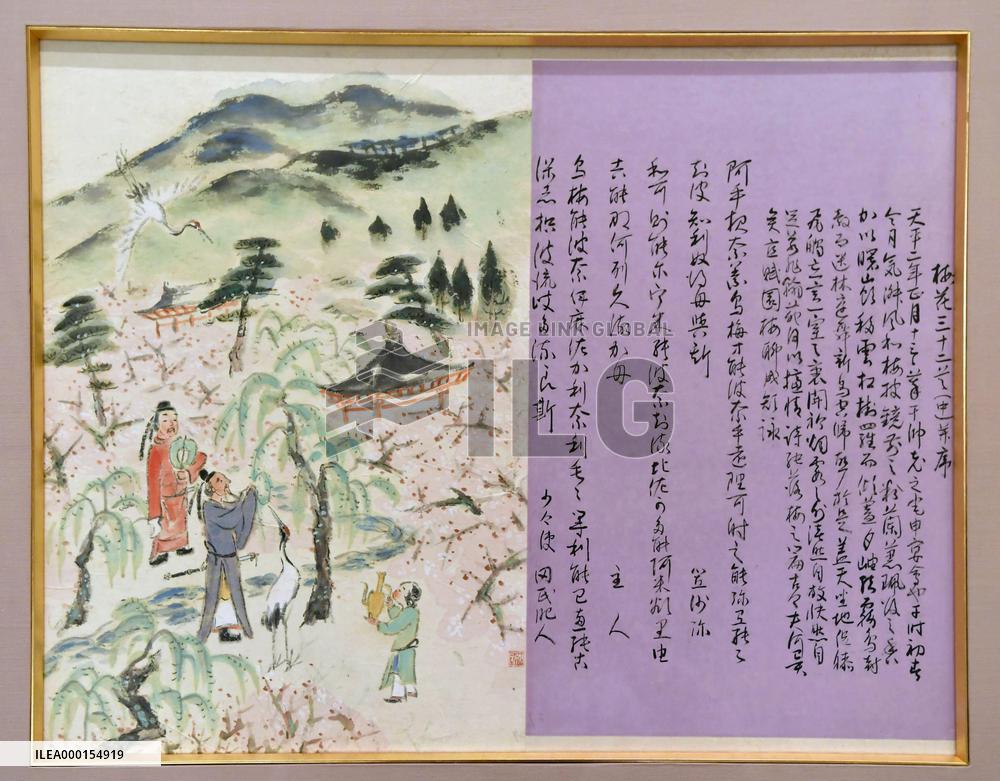 梅花三十二首(中)并序
天平二年正月十三日萃于帥老之宅申宴會也于時初春
令月氣淑風和梅披鏡前之粉蘭薫珮後之香
加以曙山嶺移雲松掛羅而傾蓋夕岫結霧鳥封
縠而迷林庭舞新蝶空歸故鴈於是盖天坐地促膝
飛觴忘言一室之裏開衿煙霞之外淡然自放快然自
足若非翰苑何以攄情詩紀落梅之篇古今夫何異
矣宜賦園梅聊成短詠
阿乎夜奈義烏梅等能波奈乎遠理可射之能弥弖能々
知波知利奴得母與斯 笠沙弥
和何則能尓宇米能波奈知流比佐可多能阿米欲里由
吉能那何列久流加母 主人
烏梅能波奈伊麻佐可利奈利毛々等利能己恵能古
保志枳波流岐多流良斯 少令史 田氏肥人
IMAGE LINK GLOBAL
ILG
ILEA000154919